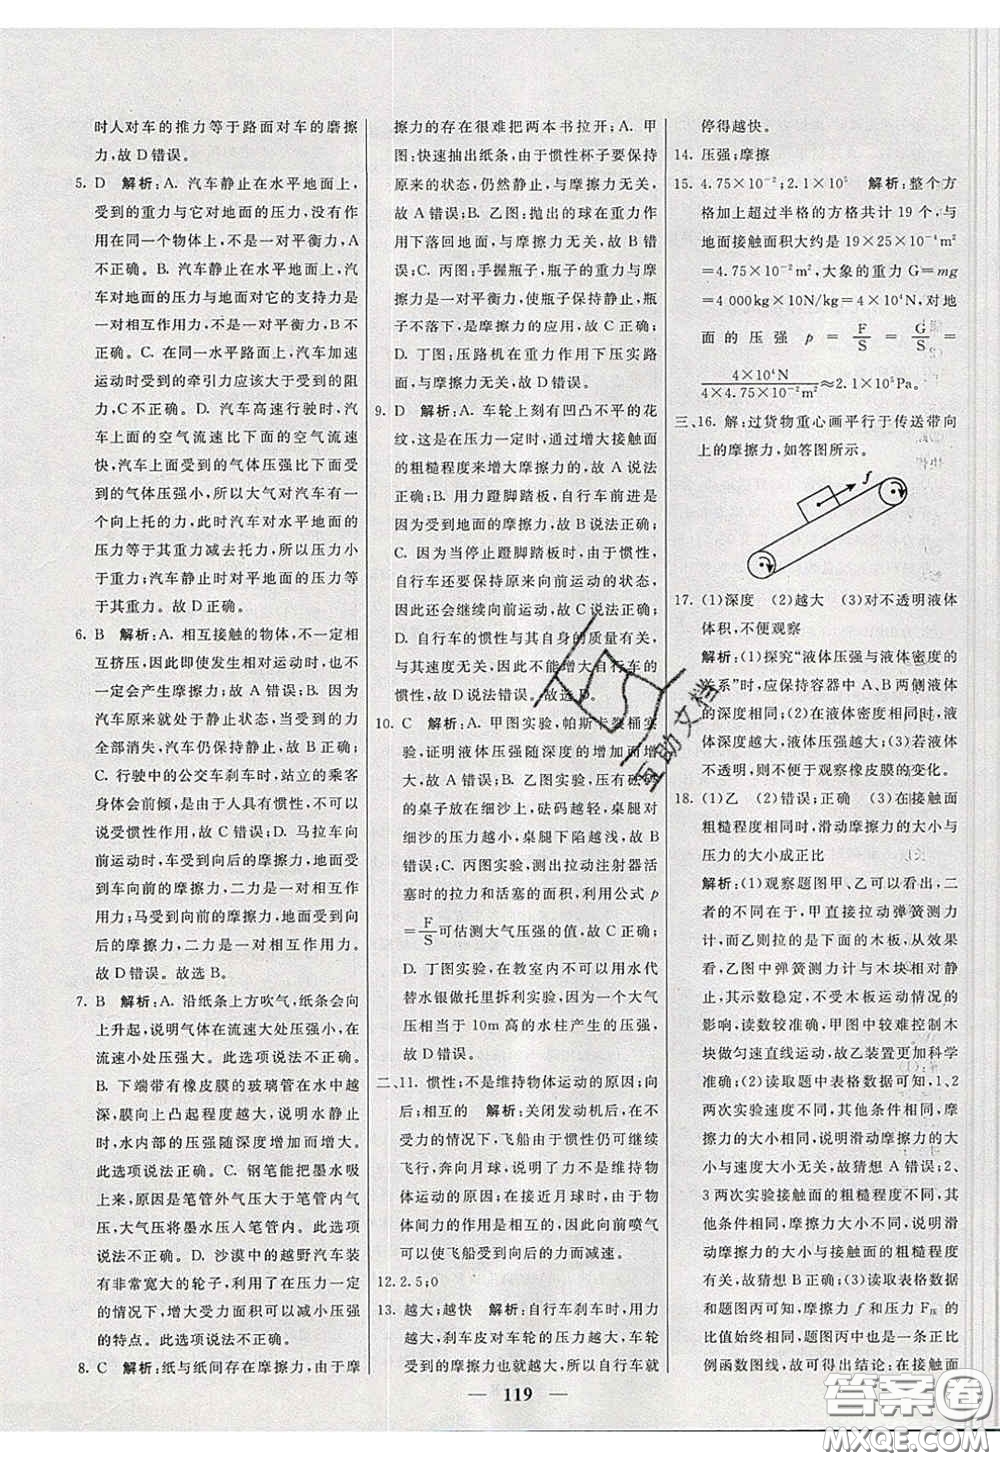 时人对车的推力等于路面对车的磨擦
力,故D错误。
5. D 解析:A. 汽车静止在水平地面上,
受到的重力与它对地面的压力,没有作
用在同一个物体上,不是一对平衡力,A
不正确。B. 汽车静止在水平地面上,汽
车对地面的压力与地面对它的支持力是
一对相互作用力,不是一对平衡力,B不
正确。C. 在同一水平路面,汽车加速
运动时受到的牵引力应该大于受到的阻
力,C不正确。D. 汽车高速行驶时,汽
车上面的空气流速比下面的空气流速
快,汽车上面受到的气体压强比下面受
到的气体压强小,
所以大气对汽车有一
个向上托的力,此时汽车对水平地面的
压力等于其重力减去托力,所以压力小
于重力;汽车静止时对平地面的压力等
于其重力。故D正确。
6. B 解析:A. 相互接触的物体,不一定
相互挤压,因此即使发生相对运动,也不
一定会产生摩擦力,故A错误;B. 因为
汽车原来就处于静止状态,当受到的力
全部消失,汽车仍保持静止,故B正确;
C. 行驶中的公交车刹车时,站立的乘客
身体会前倾,是因为其具有惯性,不可以
说受惯性作用,故C错误;D. 马拉车向
前运动时,车受到向后的摩擦力,地面受
到车向前的摩擦力,二力是一对相互作
用力;马受到向前的摩擦力,地面受到向
后的摩擦力,二力是一对相互作用力。
故D错误。故选B。
7. B 解析:A. 沿纸条上方吹气,纸条会向
上升起,说明气体在流速大处压强小,在
流速小处压强大。此选项说法不正确。
B. 下端带有橡皮膜的玻璃管在水中越
深,膜向上凸起程度越大,说明水静止
时,水内部的压强随深度增加而增大。
此选项说法正确。C. 钢笔能把墨水吸
上来,原因是笔管外气压大于笔管内气
压,大气压将墨水压入笔管内。此选项
说法不正确。D. 沙漠中的越野汽车装
有非常宽大的轮子,利用了在压力一定
的情况下,增大受力面积可以减小压强
的特点。此选项说法不正确。
8. C 解析:纸与纸间存在摩擦力,由于摩
擦力的存在很难把两本书拉开;A. 甲
图:快速抽出纸条,由于惯性杯子要保持
原来的状态,仍然静止,与摩擦力无关,
故A错误;B. 乙图:抛出的球在重力作
用下落回地面,与摩擦力无关,故B错
误;C. 丙图:手握瓶子,瓶子的重力与摩
擦力是一对平衡力,使瓶子保持静止,瓶
子不落下,是摩擦力的应用,故C正确;
D. 丁图:压路机在重力作用下压实路
面,与摩擦力无关,故D错误。
9. D 解析:A. 车轮上刻有凹凸不平的花
纹,这是在压力一定时,通过增大接触面
的粗糙程度来增大摩擦力,故A说法正
确;B. 用力蹬脚踏板,自行车前进是因
为受到地面的摩擦力,故B说法正确;
C. 因为当停止蹬脚踏板时,由于惯性,
自行车还要保持原来向前运动的状态,
因此还会继续向前运动,故C说法正确;
D. 自行车的惯性与其自身的质量有关,
与其速度无关,因此不能增大自行车的
惯性,故D说法错误。故选D。
10. C 解析:A. 甲图实验,帕斯卡裂桶实
验,证明液体压强随深度的增加而增
大,故A错误;B. 乙图实验,压有砝码
的桌子放在细沙上,砝码越轻,桌腿对
细沙的压力越小,桌腿下陷越浅,故B
错误;C. 丙图实验,测出拉动注射器活
塞时的拉力和活塞的面积,利用公式p
=F/S可估测大气压强的值,故C正确;
D. 丁图实验,在教室内不可以用水代
替水银做托里拆利实验,因为一个大气
压相当于10m高的水柱产生的压强,
故D错误。
二、11. 惯性;不是维持物体运动的原因;向
后;相互的 解析:关闭发动机后,在不
受力的情况下,飞船由于惯性仍可继续
飞行,奔向月球,说明力不是维持物体
运动的原因;在接近月球时,由于物
体间力的作用是相互的,因此向前喷气
可以使飞船受到向后的力而减速。
12. 2.5;0
13. 越大;越快 解析:自行车刹车时,用力
越大,刹车皮对车轮的压力越大,车轮
受到的摩擦力也就越大,所以自行车就
停得越快。
14. 压强;摩擦
15. 4.75×10⁻²;2.1×10⁵ 解析:整个方
格加上超过半格的方格共计19个,与
地面接触面积大约是19×25×10⁻⁴m²
=4.75×10⁻²m²,大象的重力G=mg
=4 000kg×10N/kg=4×10⁴N,对地
面的压强 p=F/S=G/S=
4×10⁴N/(4×4.75×10⁻²m²)≈2.1×10⁵Pa。
三、16. 解:过货物重心画平行于传送带向
上的摩擦力,如答图所示。
f
17. (1)深度 (2)越大 (3)对不透明液体
体积,不便观察
解析:(1)探究“液体压强与液体密度的
关系”时,应保持容器中A、B两侧液体
的深度相同;(2)液体密度相同时,液体
的深度越大,液体压强越大;(3)若液体
不透明,则不便于观察橡皮膜的变化。
18. (1)乙 (2)错误;正确 (3)在接触面
粗糙程度相同时,滑动摩擦力的大小与
压力的大小成正比
解析:(1)观察题图甲、乙可以看出,二
者的不同在于,甲直接拉动弹簧测力
计,而乙则拉的是下面的木板,分析发
现:乙图中弹簧测力计与木块保持相对
静止,不受木板运动情况的
影响,读数较准确,甲图中较难控制木
块做匀速直线运动,故乙装置更加科学
准确;(2)读取题中表格数据可知,1、2
两次实验压力不同,其他条件相同,摩
擦力的大小相同,说明滑动摩擦力的大
小与速度大小无关,故猜想A错误;2、
3两次实验接触面的粗糙程度不同,其
他条件相同,摩擦力大小不同,说明滑
动摩擦力的大小与接触面的粗糙程度
有关,故猜想B正确;(3)读取表格数据
和题图丁可以看出,摩擦力f和压力F压
的比值始终一致,题图丙中的图线为正
比例函数图线,故可得出结论:在接触面
119
互助文档
答案圈
MXQE.COM